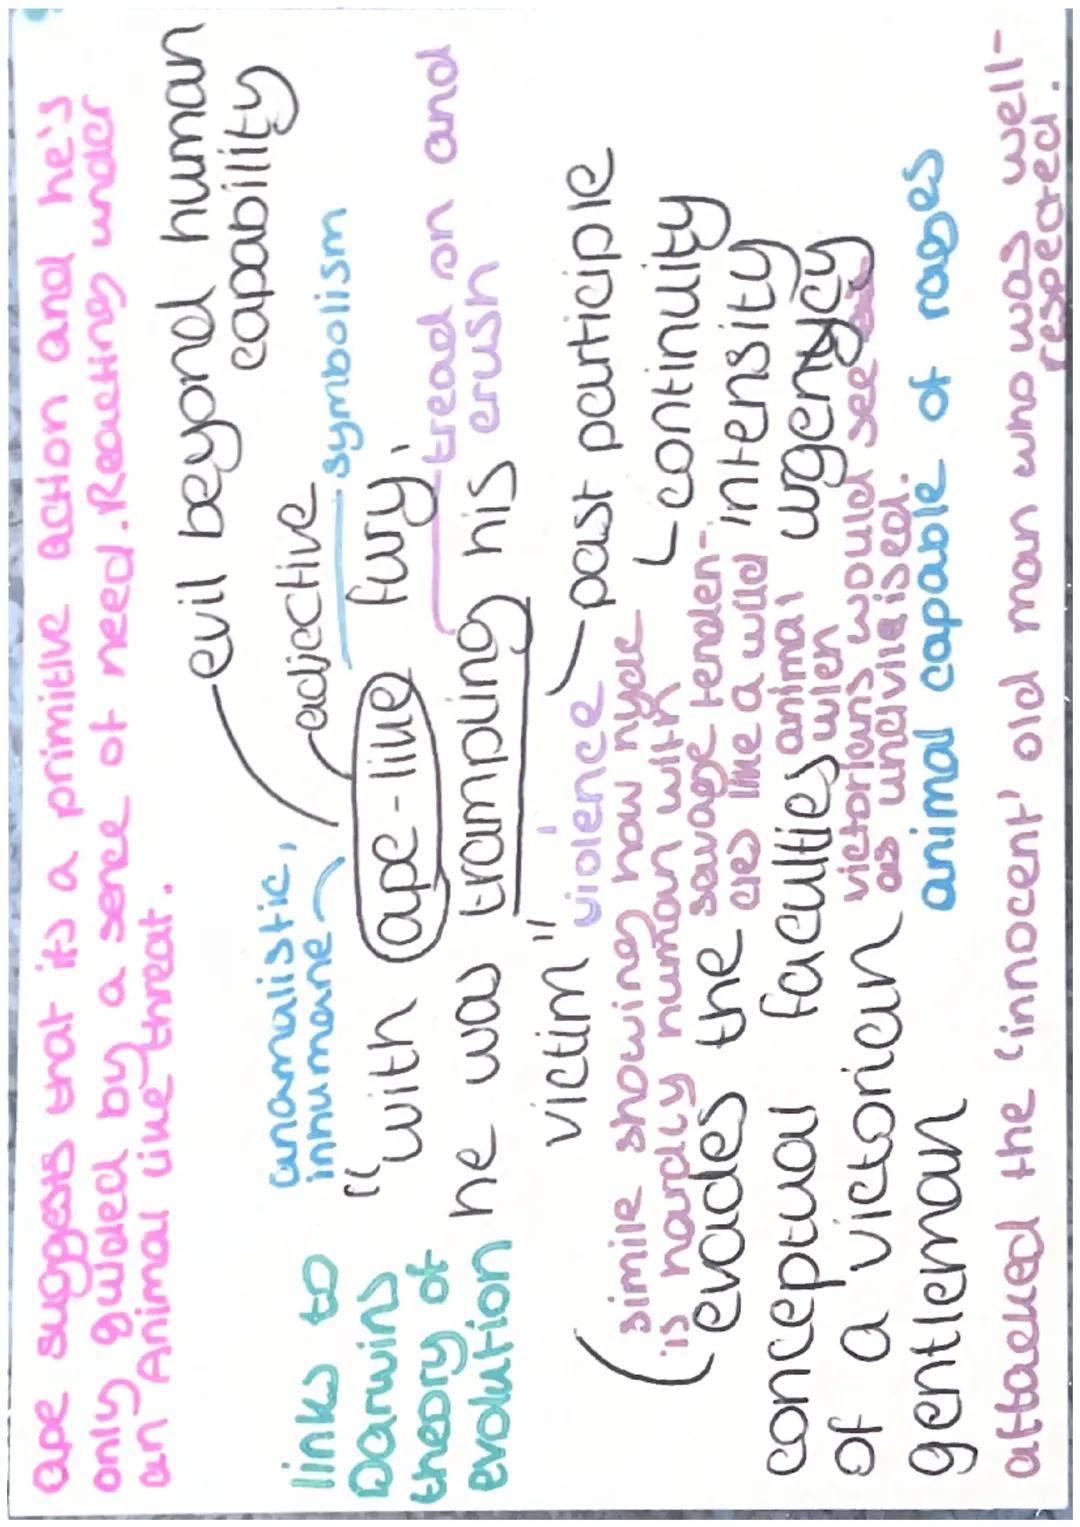 ape suggests that its a primitive action and he's
only guided by a sence of need. Reacting under
an Animal like threat.
evil beyond human
capability
adjective
symbolism
anamalistic,
inhumane
links to
Darwins
theory of
evolution
"with ape-like fury,
he was trampling his
victim"
tread on and
crush
violence
past participle
continuity
intensity
urgency
simile showing how hyde
is hardly human with
savage tenden-
cies like a wild
animal
wich
victorians would see
as uncivilaised.
evades the
conceptual faculties
of a victorian
gentleman
animal capable of rages
attacked the 'innocent' old man who was well-
respected.